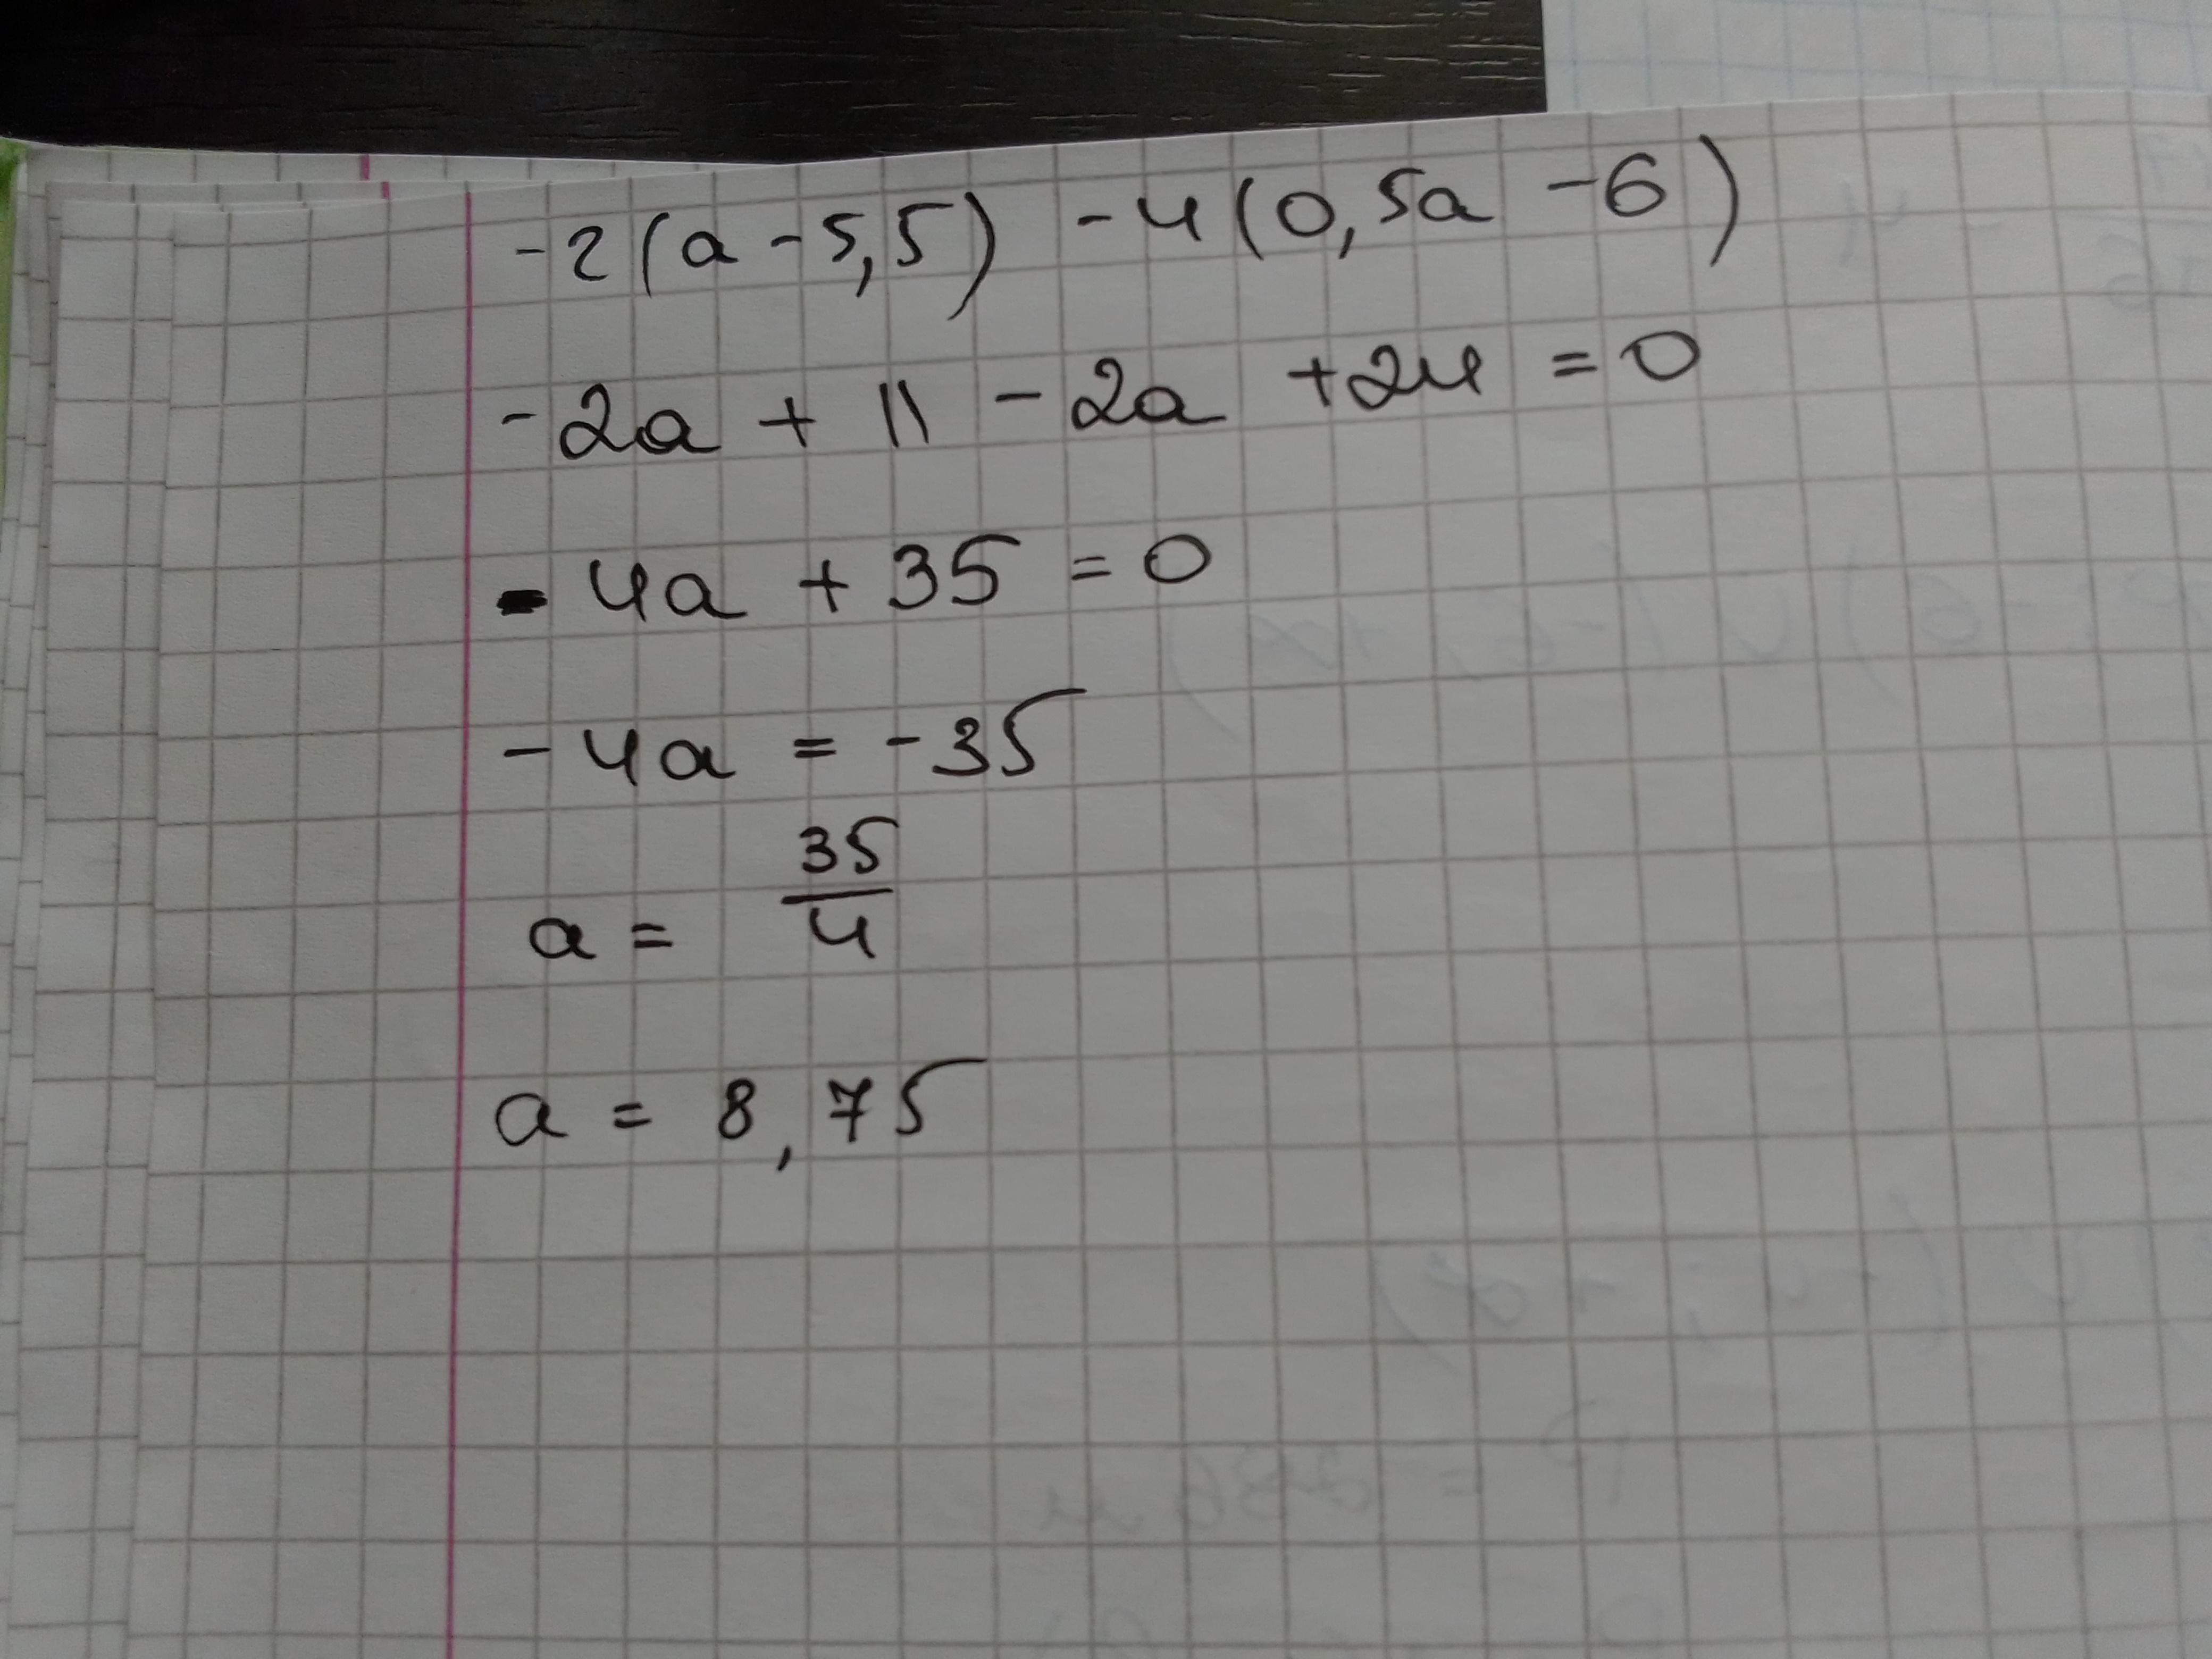 -2(a-5,5) -4(0,5a -6)
-2a + 11 - 2a +24 = 0
- 4a + 35 = 0
- 4a = -35
a = 35/4
a = 8,75